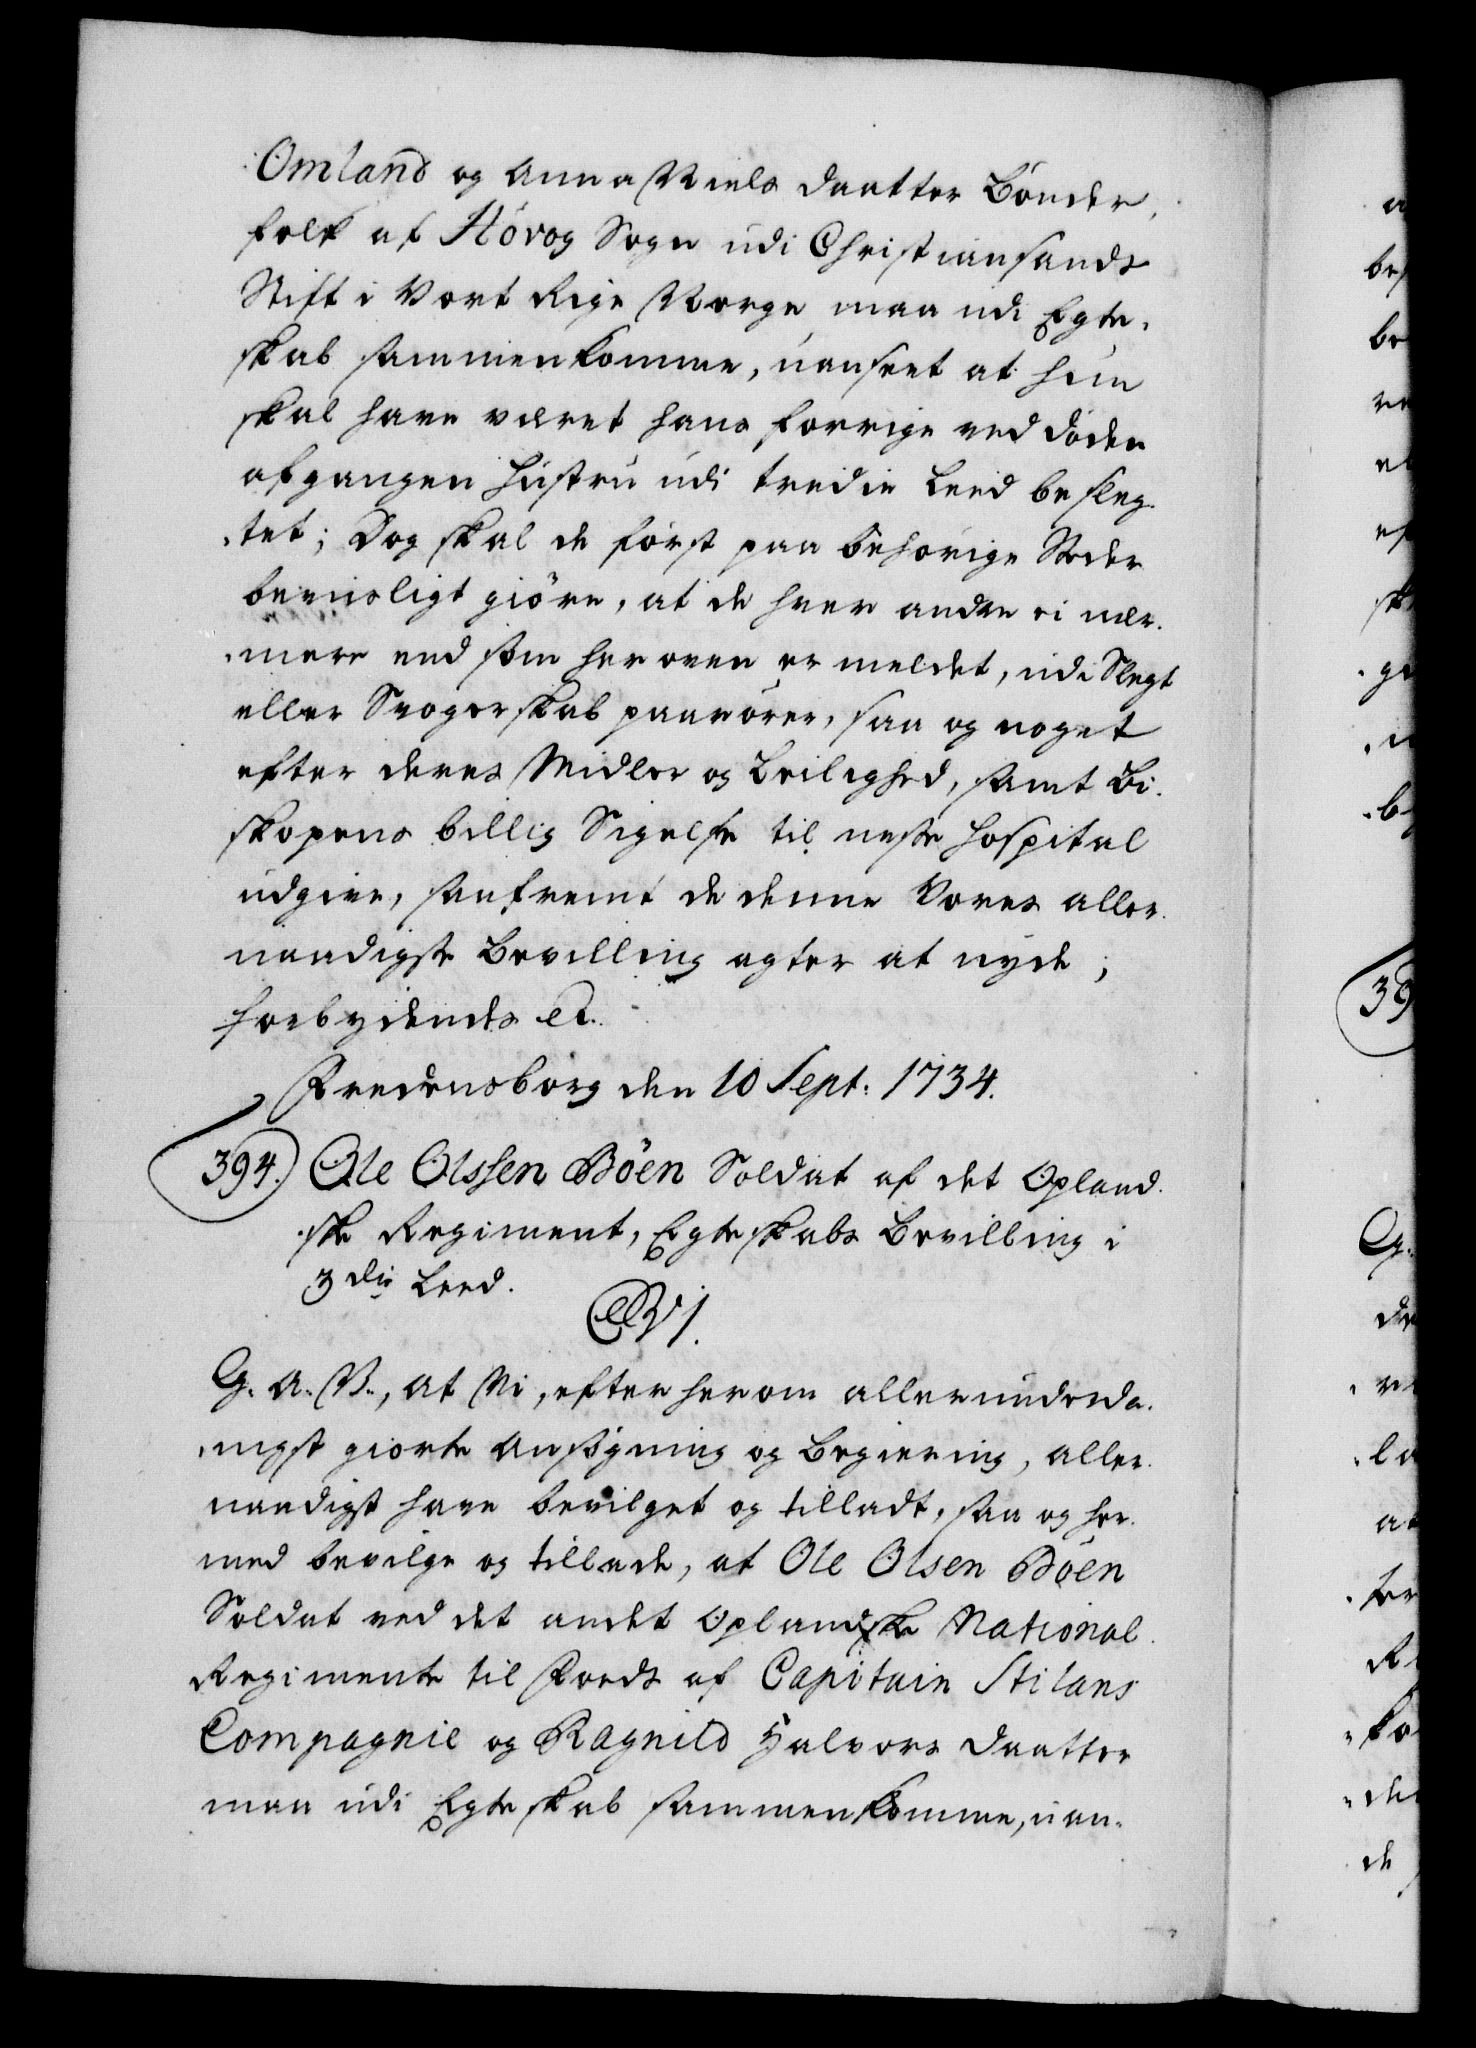 Omland og Anna Niels daatter Bönder,
folk af Hövog Sogn udi Christiansands
Stift i Vort Rige Norge maa udi Egte,
skab sammenkomme, uanseet at hun
skal have været hans forrige ved döden
afgangen Hustru udi tredie Leed besleg-
tet; Dog skal de först paa behörige Steder
beviisligt giöre, at de hver andre ei nær-
mere end som her oven er meldet, udi Slegt
eller Svogerskab paarörer, saa og noget
efter deres Midler og Leilighed, samt Bi-
skopens billig Sigelse til neste Hospital
udgive, saafremt de denne Vores aller-
naadigste Bevilling agter at nyde;
forbydendes etc.
Fredensborg den 10 Sept: 1734.
394. Ole Olssen Böen Soldat af det Opland-
ske Regiment, Egteskabs Bevilling i
3die Leed.
C. VI.
G. A. V., at Vi, efter herom allerunderda-
nigst giorte Ansögning og Begiering, aller-
naadigst have bevilget og tilladt, saa og her-
med bevilge og tillade, at Ole Olsen Böen
Soldat ved det andet Oplandske National
Regimente til Foeds af Capitain Stilans
Compagnie og Ragnild Halvors daatter
maa udi Egteskab sammenkomme, uan-